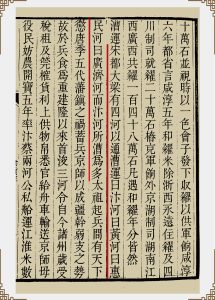 十萬石並視時以一色會子發下收糴以供軍餉咸淳
六年都省言咸淳五年和糴米除浙西永遠住糴及四
川制司就糴二十萬石樁充軍餉外京湖制司湖南江
西廣西共糴一百四十八萬石凡遇和糴年分皆然
漕運宋都大梁有四河以通漕運曰汴河曰黃河曰惠
民河曰廣濟河而汴河所漕為多太祖起兵間有天下
懲唐季五代藩鎮之禍蓄兵京師以成彊幹弱支之勢
故於兵食為重建隆以來首浚三河令自今諸州歲受
稅租及筦榷貨利上供物帛悉官給舟車輸送京師毋
役民妨農開寶五年率汴蔡兩河公私船運江淮米數